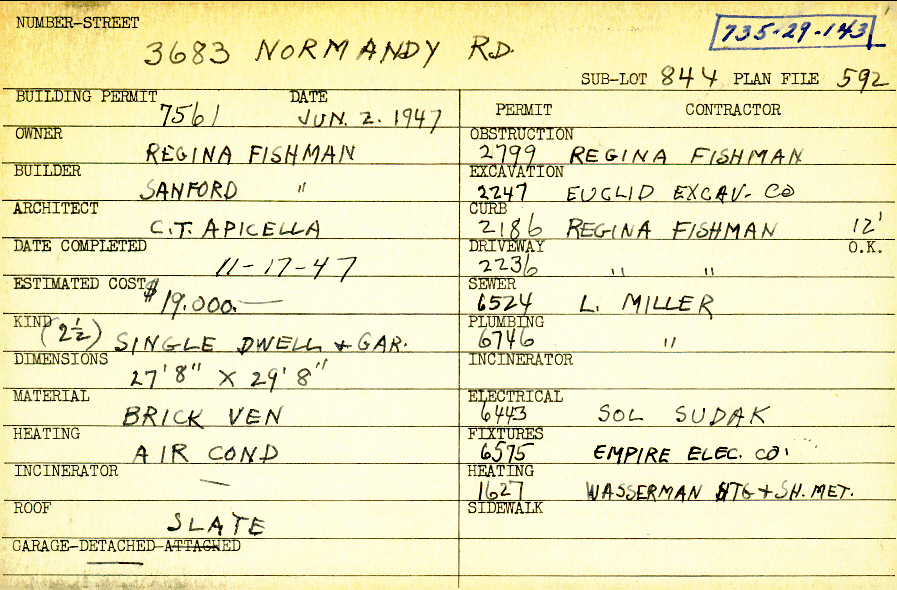 NUMBER-STREET
3683 NORMANDY RD.
735-29-143
SUB-LOT 844 PLAN FILE 592
BUILDING PERMIT DATE
7561 JUN. 2. 1947
OWNER
REGINA FISHMAN
BUILDER
SANFORD "
ARCHITECT
C.T. APICELLA
DATE COMPLETED
11-17-47
ESTIMATED COST
$19.000.—
KIND
(2½) SINGLE DWELL + GAR.
DIMENSIONS
27'8" X 29'8"
MATERIAL
BRICK VEN
HEATING
AIR COND
INCINERATOR
—
ROOF
SLATE
GARAGE-DETACHED-ATTACHED
PERMIT CONTRACTOR
OBSTRUCTION
2799 REGINA FISHMAN
EXCAVATION
2247 EUCLID EXCAV. CO
CURB
2186 REGINA FISHMAN 12'
DRIVEWAY O.K.
2236 " "
SEWER
6524 L. MILLER
PLUMBING
6746 "
INCINERATOR
ELECTRICAL
6443 SOL SUDAK
FIXTURES
6575 EMPIRE ELEC. CO.
HEATING
1627 WASSERMAN HTG + SH. MET.
SIDEWALK